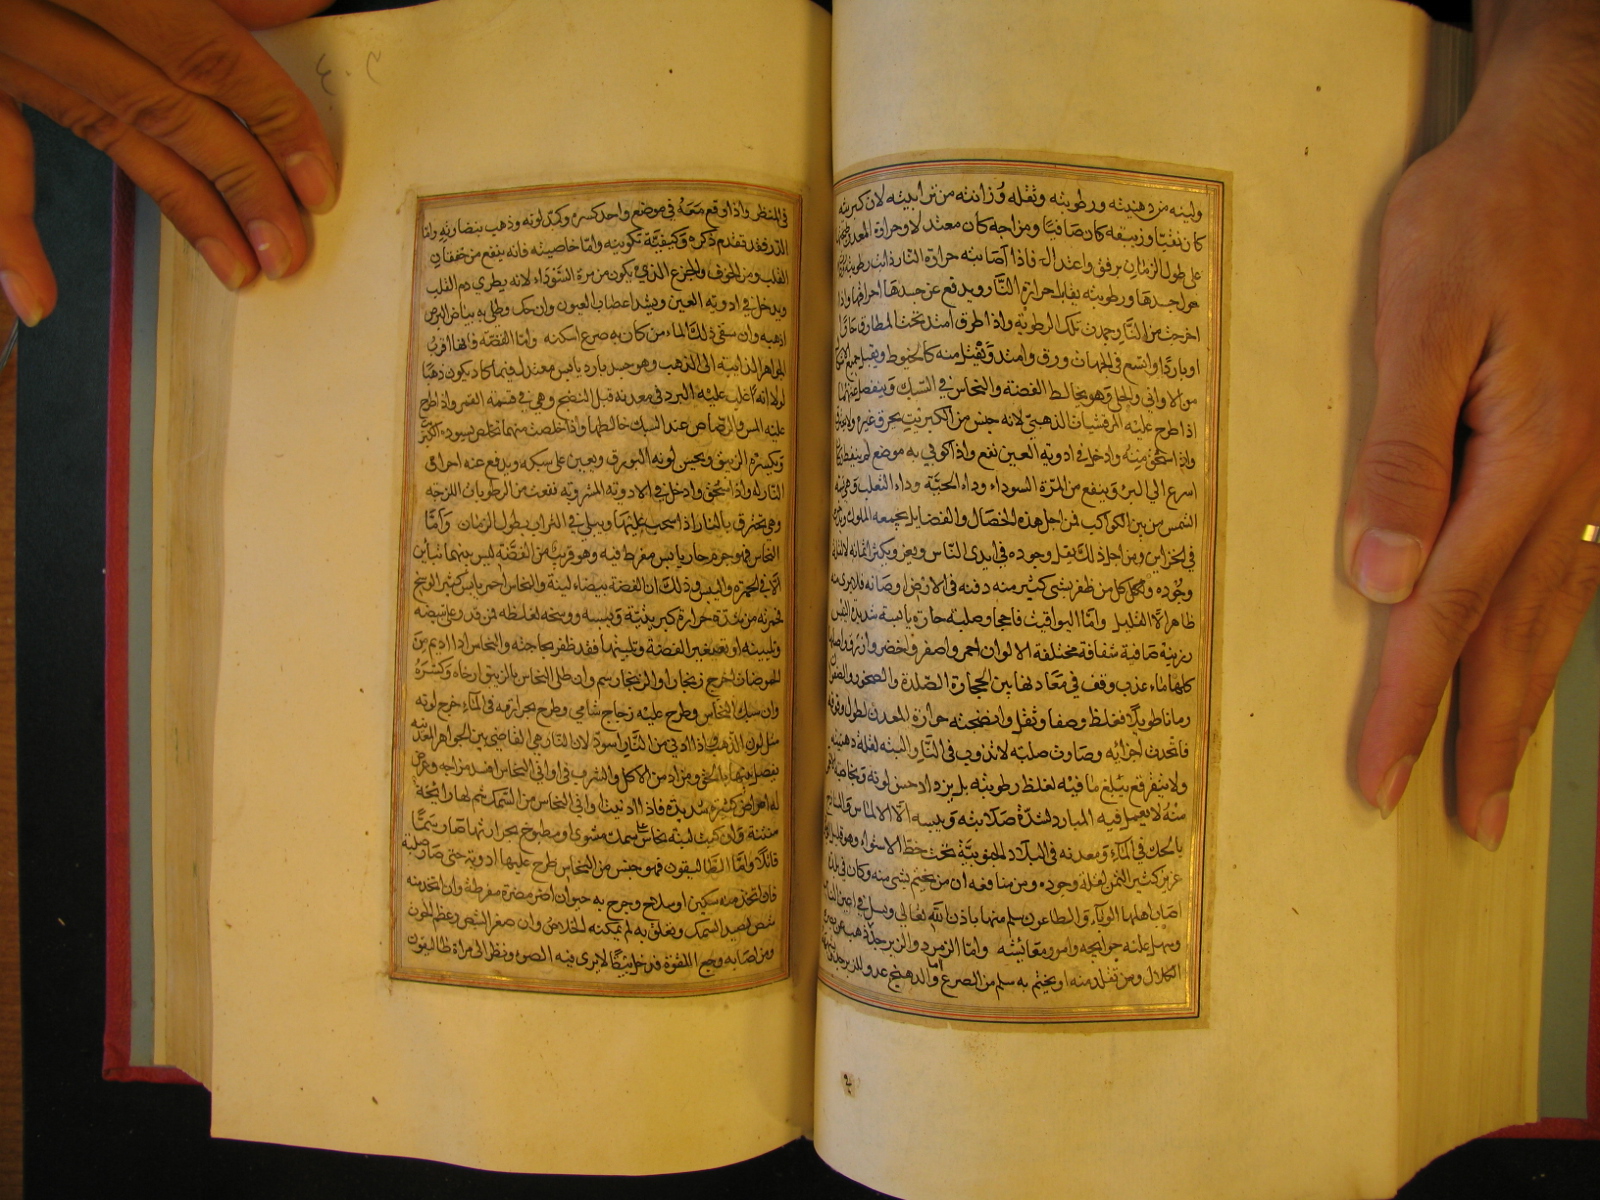 ولينه من دهنيته ورطوبته وثقله ورزانته من ترابيته لان كبريته
كان نقيا وزيبقه كان صافيا ومزاجه كان معتدلا وحرارة المعدن
على طول الزمان برفق واعتدال فاذا اصابته حرارة النار ذابت رطوبته
حول جسدها ورطوبته يقابل حرارة النار ويدفع عن جسدها احراقها واذا
اخرجت من النار وجمدت تلك الرطوبة واذا طرق امتد تحت المطارق حارا
او باردا واتسع في الجهات ورق وامتد ويفتل منه كالخيوط ويقبل جميع
من الاواني والحلي وهو يخالط الفضة والنحاس في السبك وينفصل عنهما
اذا طرح عليه المرقشيثا الذهبي لانه جنس من الكبريت يحرق غيره ولا
واذا استحق منه وادخل في ادوية العين نفع واذا كوي به موضع لم ينفط
اسرع الى البرء وينفع من المرة السوداء وداء الحية وداء الثعلب وهي
الشمس من بين الكواكب فمن اجل هذه الخصال والفضايل يجمعه الملوك
في الخزاين ومن اجل ذلك يقل وجوده في ايدي الناس ويعز ويكثر اثمانه لا لقلة
وجوده ولكل من ظفر بشي كثير منه دفنه في الارض وصانه فلا يرى منه
ظاهرا الا القليل واما اليواقيت فاحجار صلبة حارة يابسة شديدة اليبس
رزينة صافية شفافة مختلفة الالوان احمر واصفر واخضر وازرق واصلها
كلها ماء عذب وقف في معادنها بين الحجارة الصلدة والصخور
زمانا طويلا فغلظ وصفا وثقل وانضجته حرارة المعدن لطول وقوفه
فاتحدت اجزايه وصارت صلبه لا تذوب في النار البتة لقلة دهنيته
ولا يتفرقع لغلظ رطوبته بل يزداد حسن لونه
منه لا يعمل فيه المبارد لشدة صلابته ويبسه الا الالماس
بالحك في الماء ومعدنه في البلاد الجنوبية تحت خط الاستواء وهو قليل
عزيز كثير الثمن لقلة وجوده ومن منافعه ان من تختم بشي منه وكان في بلد
اصاب اهلها الوباء والطاعون سلم منها باذن الله تعالى ونبل في اعين الناس
وسهل عليه حوايجه وامور معايشه واما الزمرد والزبرجد
الكلال ومن تقلد منه او تختم به سلم من الصرع واما الدهنج عدو للزبرجد
في المنظر واذا وقع معه في موضع واحد كسره وكدر لونه وذهب بنضارته واما
الدر فقد تقدم ذكره وكيفية تكوينه واما خاصيته فانه ينفع من خفقان
القلب ومن الخوف والجزع الذي يكون من مرة السوداء لانه يطري دم القلب
ويدخل في ادوية العين ويشد اعصاب العيون وان حك وطلي به بياض البرص
اذهبه وان سقي ذلك الماء من كان به صرع اسكنه واما الفضة فانها اقرب
الجواهر الذايبة الى الذهب وهو جسد بارد يابس معتدل فيها كاد يكون ذهبا
لولا انه اغلب عليه البرد في معدنه قبل النضج وهي في قسمة القمر واذا طرح
عليه المس والرصاص عند السبك خالطها واذا خلصت منهما
ويكسره الزيبق ويحسن لونه البورق ويعين على سبكه ويدفع عنه احراق
النار له واذا استحق وادخل في الادوية المشروبة نفعت من الرطوبات اللزجة
وهي تحترق بالنار اذا اسحب عليها ويبلى في التراب بطول الزمان واما
النحاس فهو جرم حار يابس مفرط فيه وهو قريب من الفضة ليس بينهما تباين
الا في الحمرة واليبس وذلك ان الفضة بيضاء لينة والنحاس احمر يابس كثير الوسخ
فحمرته من شدة حرارة كبريتية ويبسه ووسخه لغلظه فمن قدر على تبييضه
وتليينه او تصغير الفضة وتليينها فقد ظفر بحاجته والنحاس اذا ادني من
الحموضات اخرج زنجارا والزنجار سم وان طلي النحاس بالزيبق ارخاه وكسره
وان سبك النحاس وطرح عليه زجاج شامي وطرح بحرارته في الماء خرج لونه
مثل لون الذهب واذا ادني من النار اسود لان النار هي القاضي بين الجواهر المعدنية
يفصل بينها بالحق ومن اد من الاكل والشرب في اواني النحاس افسد مزاجه وعرض
له امراض كثيرة شديدة فاذا ادنيت اواني النحاس من السمك شم لها رايحة
منتنة وان كبت انية نحاس على سمك مشوي او مطبوخ بحرارتها صارت سما
قاتلا واما الطاليقون فهو جنس من النحاس طرح عليها ادوية حتى صار صلبة
فان اتخذ منه سكين او سلاح وجرح به حيوان اضر مضرة مفرطة وان اتخذ منه
شص لصيد السمك وتعلق به لم يمكنه الخلاص وان صغر الشص وعظم الحوت
ومن اصابه وجع اللقوة فدخل بيتا لا يرى فيه الضوء ونظر الى مراة طاليقون